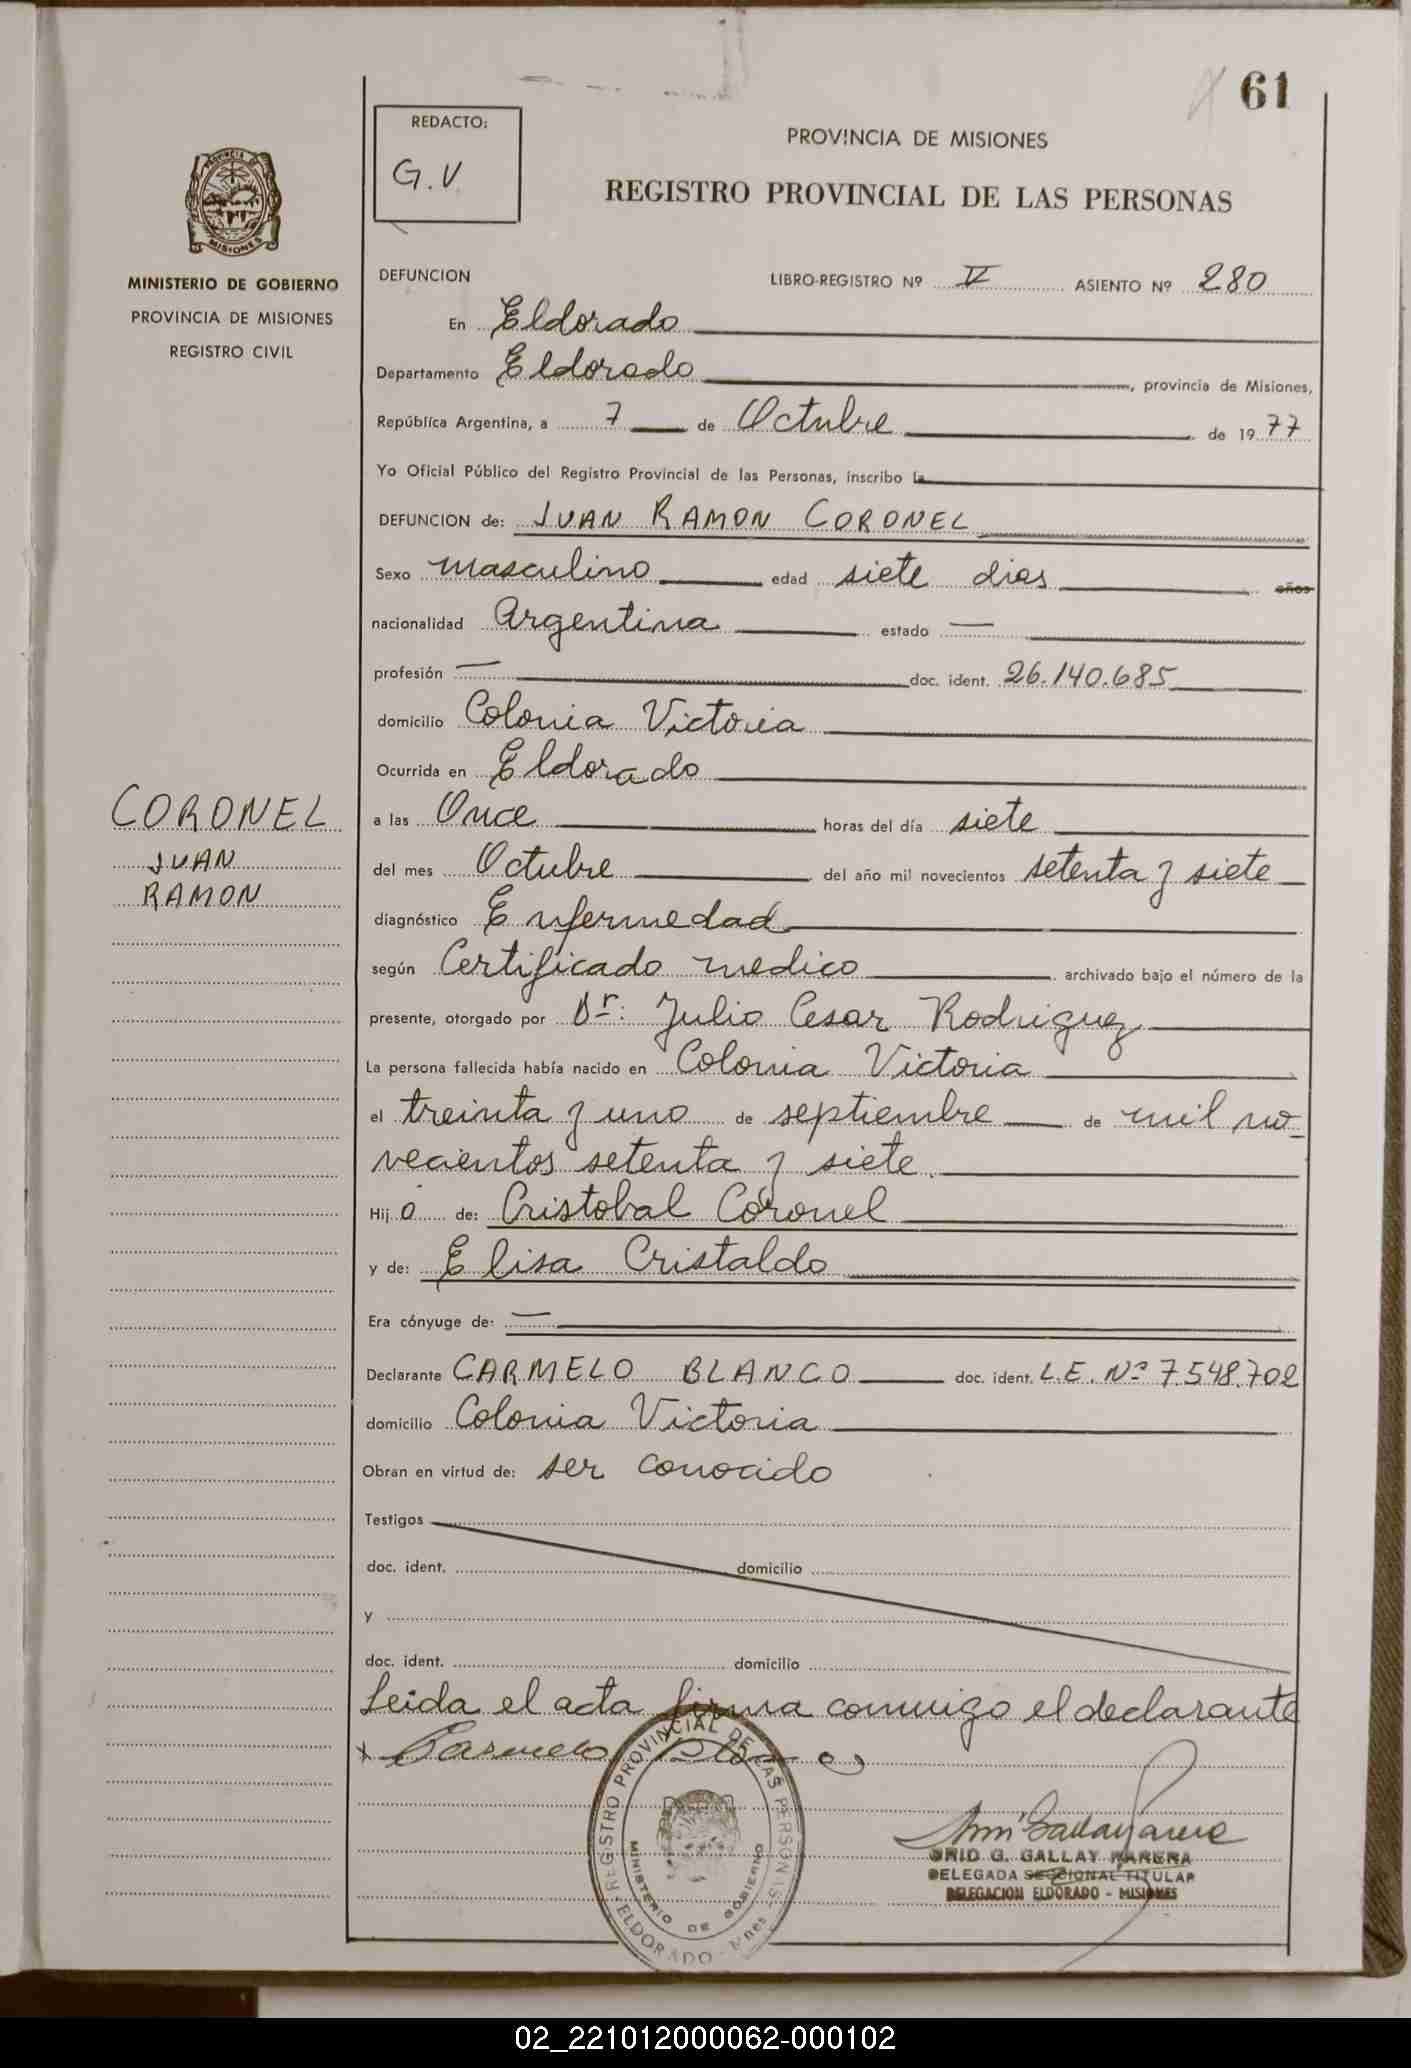 61
REDACTO:
G.V.
PROVINCIA DE MISIONES
REGISTRO PROVINCIAL DE LAS PERSONAS
PROVINCIA DE
MISIONES
MINISTERIO DE GOBIERNO
PROVINCIA DE MISIONES
REGISTRO CIVIL
DEFUNCION LIBRO-REGISTRO Nº V ASIENTO Nº 280
En Eldorado
Departamento Eldorado, provincia de Misiones,
República Argentina, a 7 de Octubre de 1977
Yo Oficial Público del Registro Provincial de las Personas, inscribo la
DEFUNCION de: JUAN RAMON CORONEL
Sexo masculino edad siete dias años
nacionalidad Argentina estado —
profesión — doc. ident. 26.140.685
domicilio Colonia Victoria
Ocurrida en Eldorado
CORONEL
JUAN
RAMON
a las Once horas del día siete
del mes Octubre del año mil novecientos setenta y siete
diagnóstico Enfermedad
según Certificado medico archivado bajo el número de la
presente, otorgado por Dr: Julio Cesar Rodriguez
La persona fallecida había nacido en Colonia Victoria
el treinta y uno de septiembre de mil no-
vecientos setenta y siete.
Hij o de: Cristobal Coronel
y de: Elisa Cristaldo
Era cónyuge de: —
Declarante CARMELO BLANCO doc. ident. L.E. Nº 7.548.702
domicilio Colonia Victoria
Obran en virtud de: ser conocido
Testigos
doc. ident. domicilio
y
doc. ident. domicilio
Leida el acta firma conmigo el declarante
x Carmelo Blanco
REGISTRO PROVINCIAL DE LAS PERSONAS
MINISTERIO DE GOBIERNO
ELDORADO - Mnes
G. GALLAY PARERA
DELEGADA SECCIONAL TITULAR
DELEGACION ELDORADO - MISIONES
02_221012000062-000102